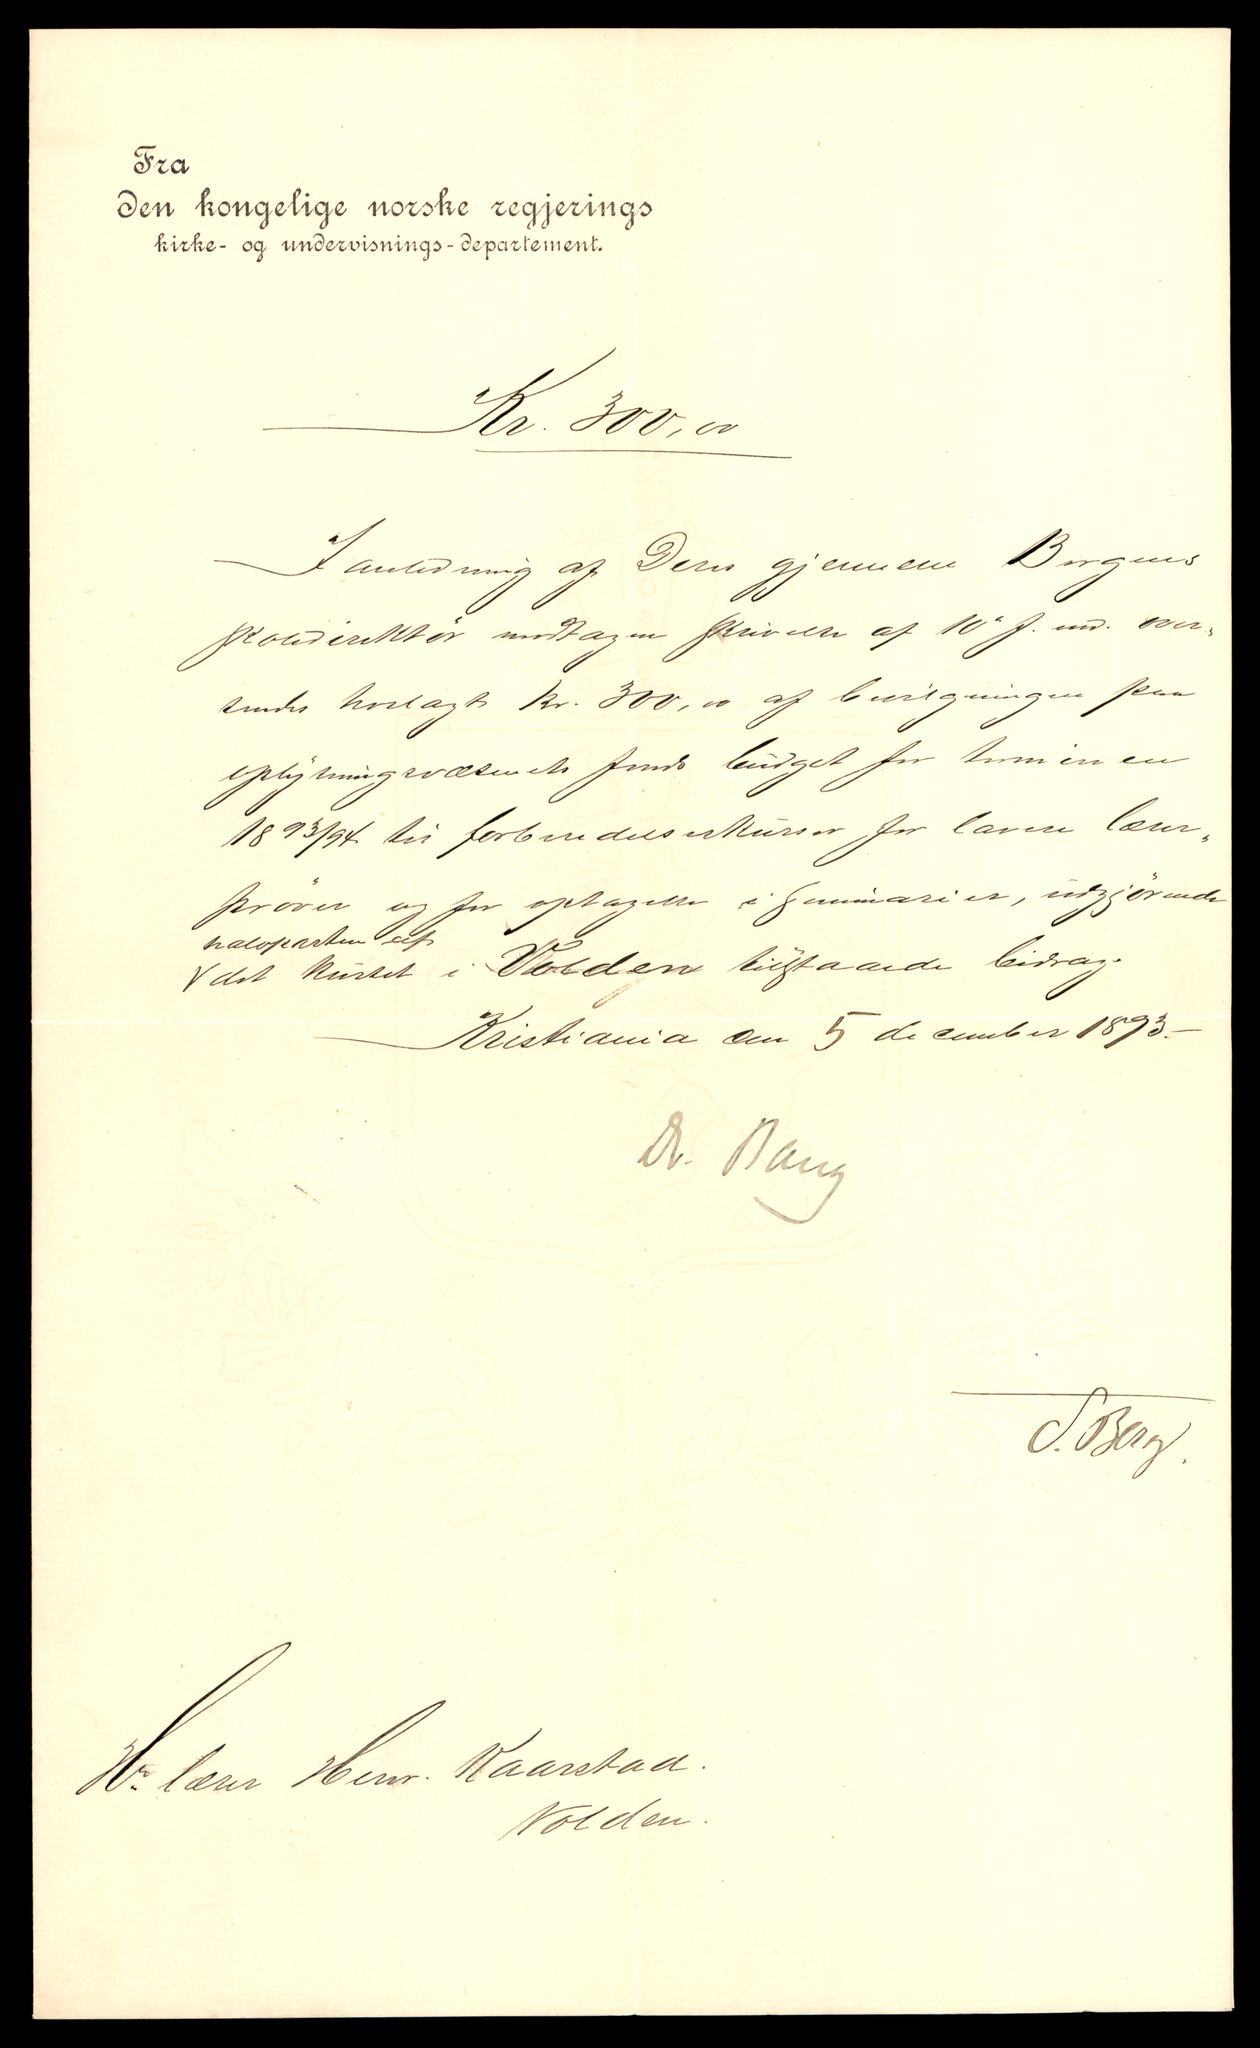 Fra
Den kongelige norske regjerings
kirke- og undervisnings-departement.
Kr. 300,00
I anledning af Deres gjennem Bergens
skoledirektör modtagne skrivelse af 10de f. md. over-
sendes hoslagt kr. 300,00 af bevilgningen paa
oplysningsvæsenets fonds budget for terminen
1893/94 til forberedelseskurser for lavere lærer-
prøver og for optagelse i seminarier, udgjörende
halvparten af
det kurset i Volden tilstaaede bidrag.
Kristiania den 5 december 1893.
Dr. Bang
S. Berg.
Hr. lærer Henr. Kaarstad.
Volden.